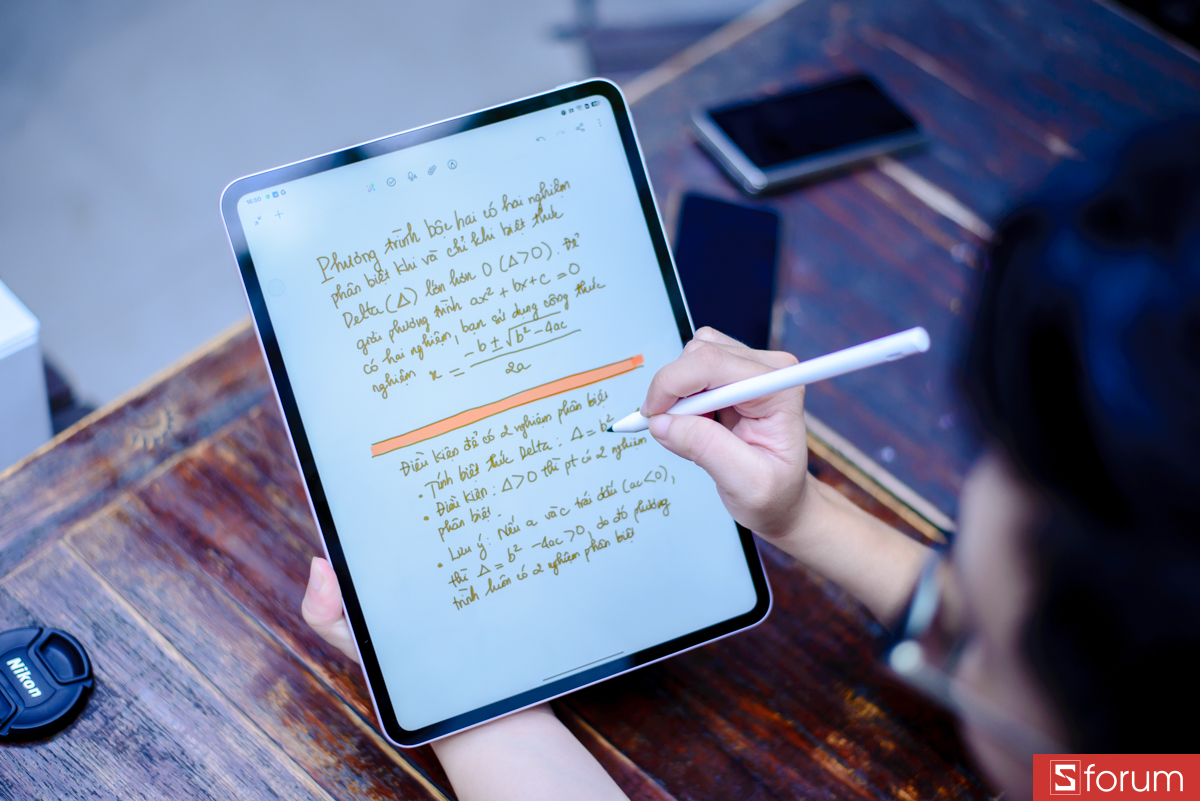 16:50
Phương trình bậc hai có hai nghiệm
phân biệt khi và chỉ khi biệt thức
Delta (Δ) lớn hơn 0 (Δ>0). Để
giải phương trình ax² + bx + c = 0
có hai nghiệm, bạn sử dụng công thức
nghiệm x = (-b ± √(b² - 4ac)) / 2a
Điều kiện để có 2 nghiệm phân biệt
• Tính biệt thức Delta : Δ = b²
• Điều kiện : Δ>0 thì pt có 2 nghiệm
phân biệt.
• Lưu ý: Nếu a và c trái dấu (ac<0),
thì Δ = b² - 4ac >0, do đó phương
trình luôn có 2 nghiệm phân biệt
Nikon
Sforum